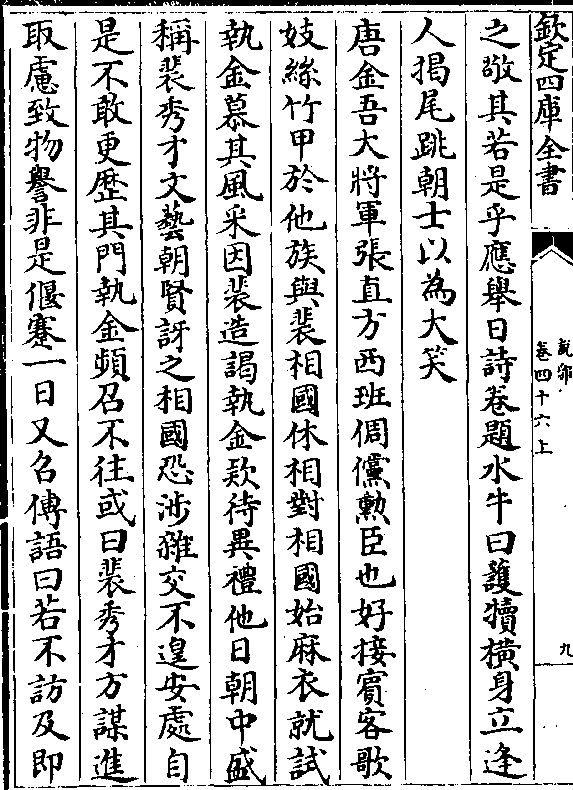 欽定四庫全書
說郛
卷四十六上
九
之敬其若是乎應舉日詩卷題水牛曰護犢橫身立逢
人揭尾跳朝士以為大笑
唐金吾大將軍張直方西班倜儻勲臣也好接賓客歌
妓絲竹甲於他族與裴相國休相對相國始麻衣就試
執金慕其風采因裴造謁執金款待異禮他日朝中盛
稱裴秀才文藝朝賢訝之相國恐涉雜交不遑安處自
是不敢更歴其門執金頻召不往或曰裴秀才方謀進
取慮致物譽非是偃蹇一日又召傅語曰若不訪及即